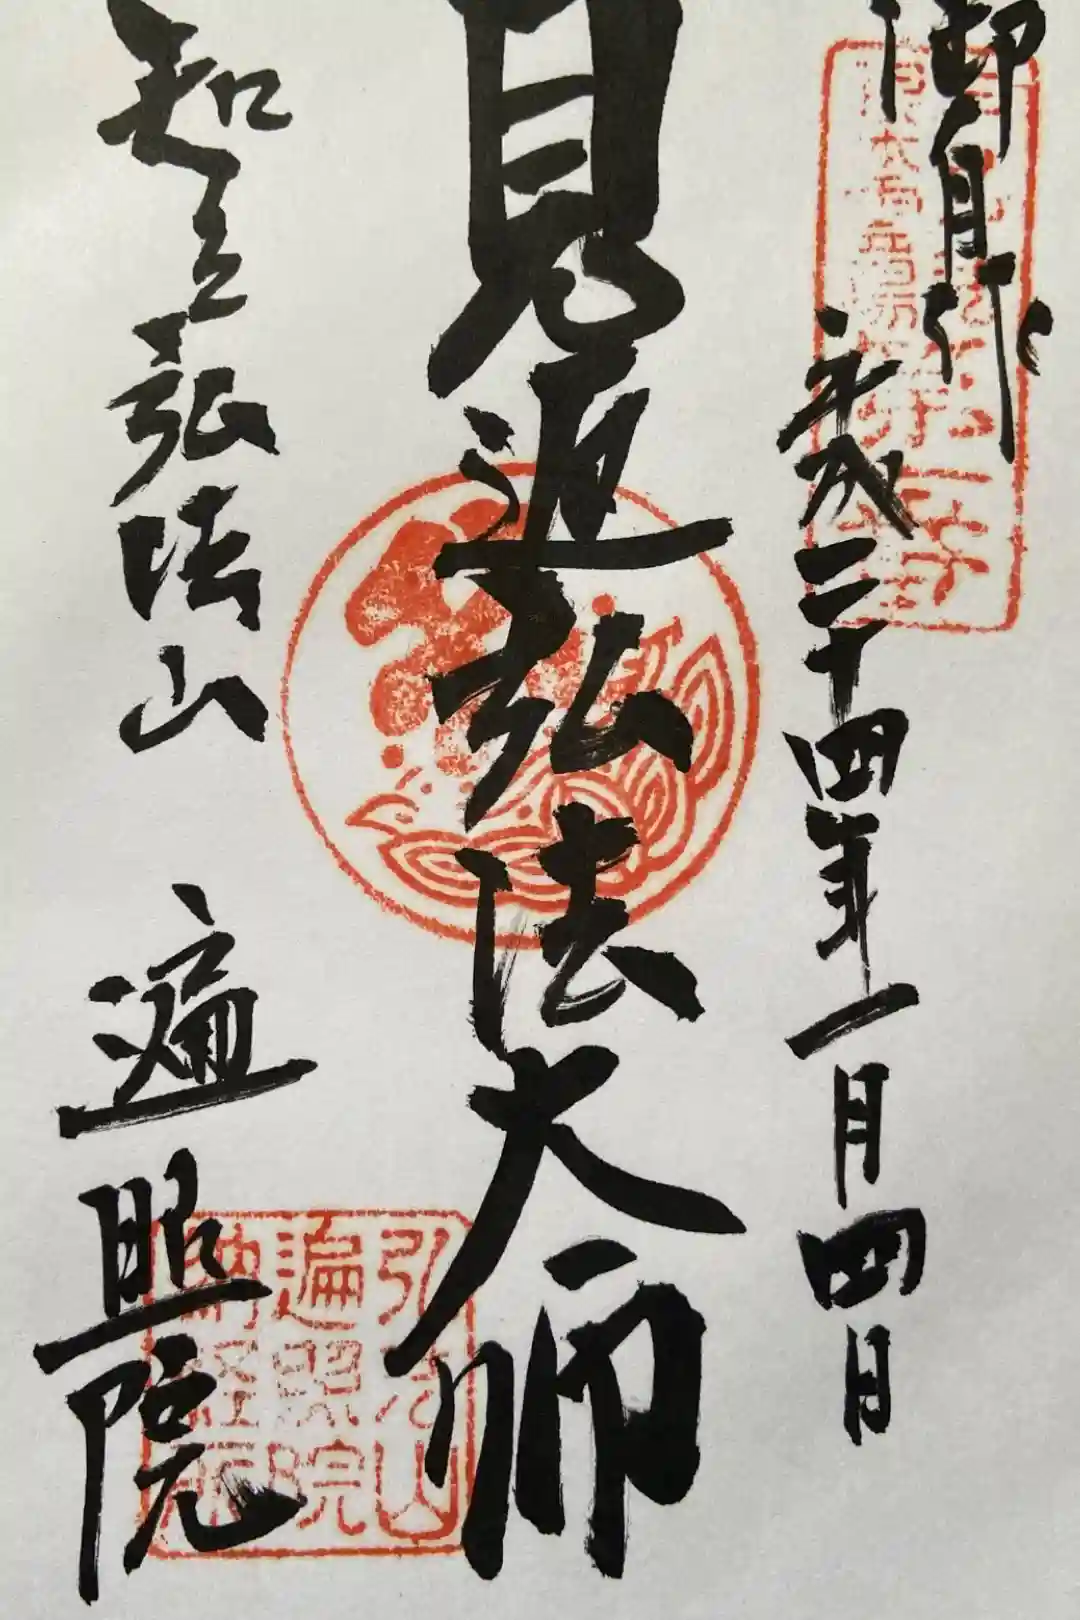 御身代
平成二十四年一月四日
見返弘法大師
知立弘法山 遍照院
弘法山
遍照院
納経所